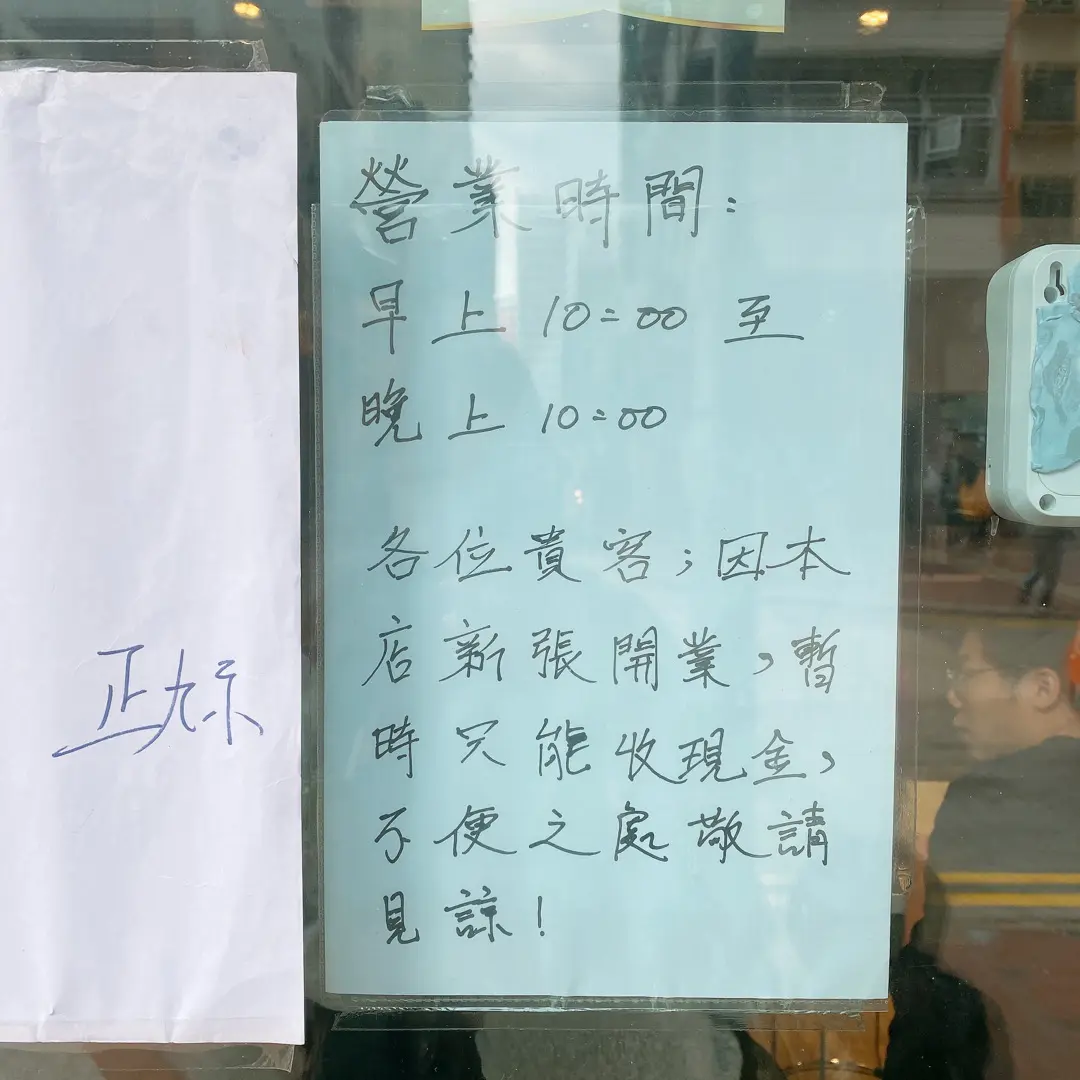 營業時間：
早上 10:00 至
晚上 10:00
各位貴客；因本
店新張開業，暫
時只能收現金，
不便之處敬請
見諒！